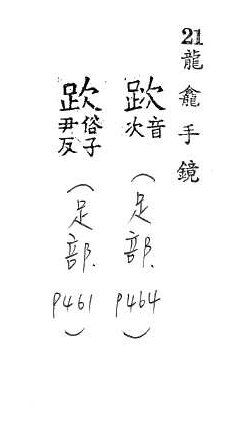 21龍龕手鏡
音次(足部. P464)
俗子尹反(足部. P461)